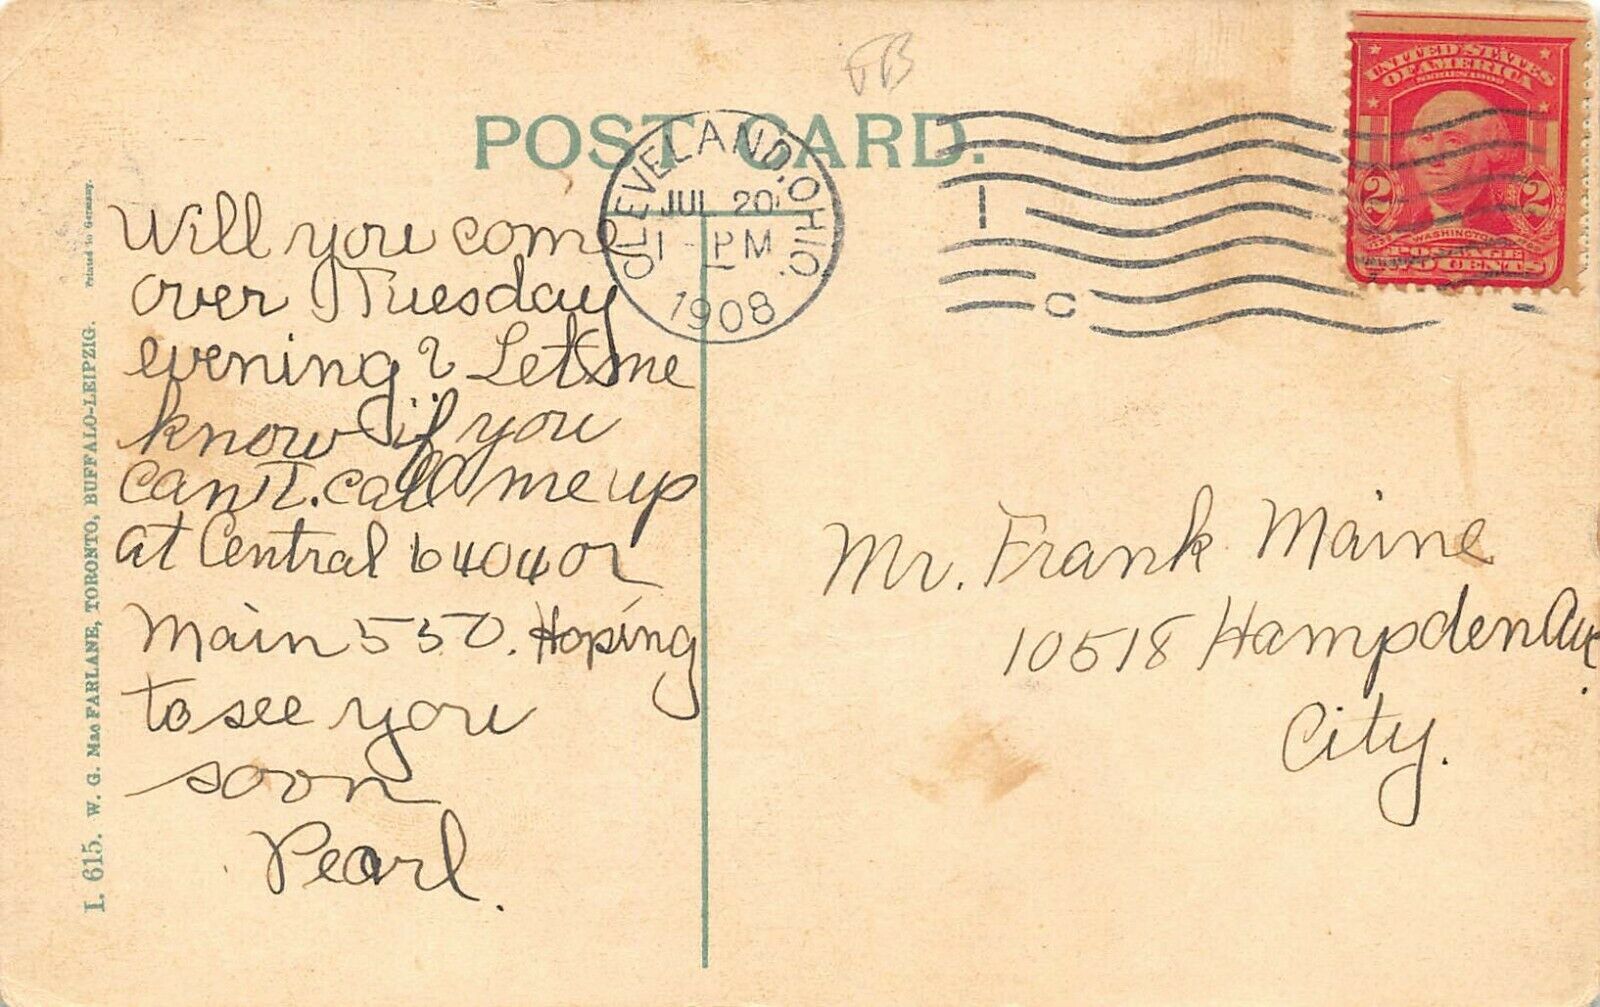 POST CARD.
CLEVELAND, OHIO.
JUL 20
1 - PM
1908
1
C
UNITED STATES
OF AMERICA
SERIES 1902
2 2
WASHINGTON
TWO CENTS
Will you come
over Tuesday
evening? Let me
know if you
can't. call me up
at Central 6404 or
Main 550. Hoping
to see you
soon
Pearl.
Mr. Frank Maine
10518 Hampden Ave.
City.
I. 615. W. G. Mac FARLANE, TORONTO, BUFFALO-LEIPZIG. Printed in Germany.